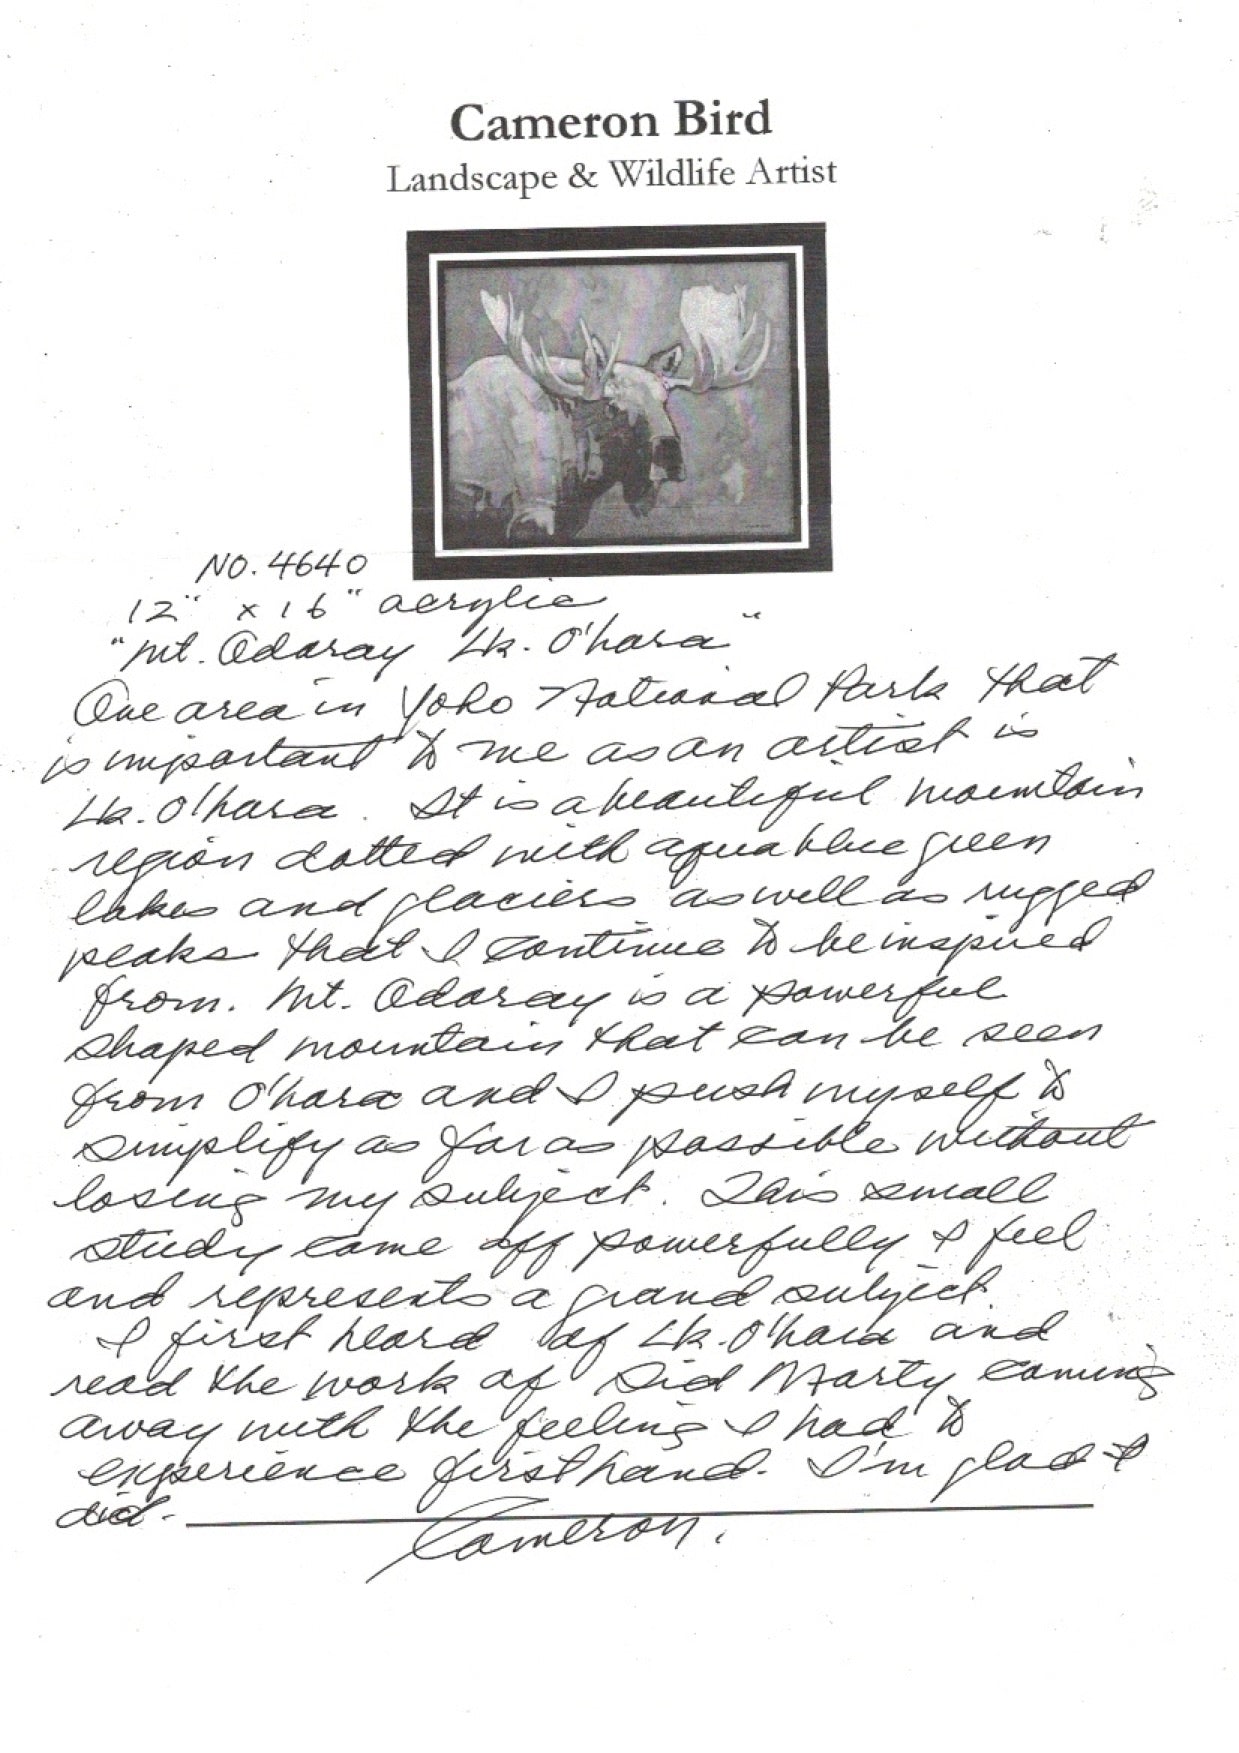 Cameron Bird
Landscape & Wildlife Artist
NO. 4640
12" x 16" acrylic
"Mt. Odaray Lk. O'hara"
One area in Yoho National Park that
is important to me as an artist is
Lk. O'hara. It is a beautiful mountain
region dotted with aqua blue green
lakes and glaciers as well as rugged
peaks that I continue to be inspired
from. Mt. Odaray is a powerful
shaped mountain that can be seen
from O'hara and I push myself to
simplify as far as possible without
losing my subject. This small
study came off powerfully I feel
and represents a grand subject.
I first heard of Lk. O'hara and
read the work of Sid Marty coming
away with the feeling I had to
experience first hand. I'm glad I
did.
Cameron.